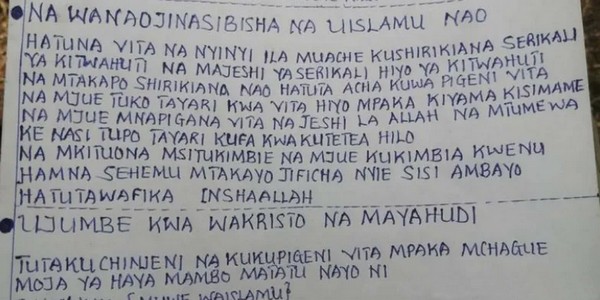 NA WANAOJINASIBISHA NA UISLAMU NAO
HATUNA VITA NA NYINYI ILA MUACHE KUSHIRIKIANA SERIKALI
YA KITWAHUTI NA MAJESHI YA SERIKALI HIYO YA KITWAHUTI
NA MTAKAPO SHIRIKIANA NAO HATUTA ACHA KUWA PIGENI VITA
NA MJUE TUKO TAYARI KWA VITA HIYO MPAKA KIYAMA KISIMAME
NA MJUE MNAPIGANA VITA NA JESHI LA ALLAH NA MTUME WA
KE NASI TUPO TAYARI KUFA KWA KUTETEA HILO
NA MKITUONA MSITUKIMBIE NA MJUE KUKIMBIA KWENU
HAMNA SEHEMU MTAKAYO JIFICHA NYIE SISI AMBAYO
HATUTAWAFIKA INSHAALLAH
UJUMBE KWA WAKRISTO NA MAYAHUDI
TUTAKUCHINJENI NA KUKUPIGENI VITA MPAKA MCHAGUE
MOJA YA HAYA MAMBO MATATU NAYO NI
WAISLAMU?